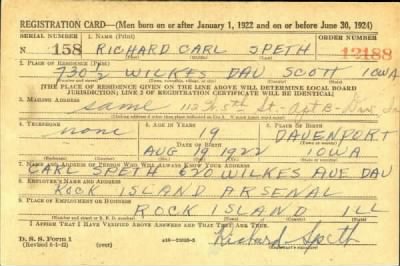 REGISTRATION CARD—(Men born on or after January 1, 1922 and on or before June 30, 1924)
SERIAL NUMBER 1. NAME (Print) ORDER NUMBER
N 158 RICHARD CARL SPETH 12188
2. PLACE OF RESIDENCE (Print)
730½ WILKES DAV SCOTT IOWA
[THE PLACE OF RESIDENCE GIVEN ON THE LINE ABOVE WILL DETERMINE LOCAL BOARD
JURISDICTION; LINE 2 OF REGISTRATION CERTIFICATE WILL BE IDENTICAL]
3. MAILING ADDRESS
same 5th St. Apt B-
4. TELEPHONE 5. AGE IN YEARS 6. PLACE OF BIRTH
none 19 DAVENPORT
DATE OF BIRTH
AUG 19 1922 IOWA
7. NAME AND ADDRESS OF PERSON WHO WILL ALWAYS KNOW YOUR ADDRESS
CARL SPETH 620 WILKES AVE DAV
8. EMPLOYER'S NAME AND ADDRESS
ROCK ISLAND ARSENAL
9. PLACE OF EMPLOYMENT OR BUSINESS
ROCK ISLAND ILL
I AFFIRM THAT I HAVE VERIFIED ABOVE ANSWERS AND THAT THEY ARE TRUE.
D. S. S. Form 1
Richard Speth